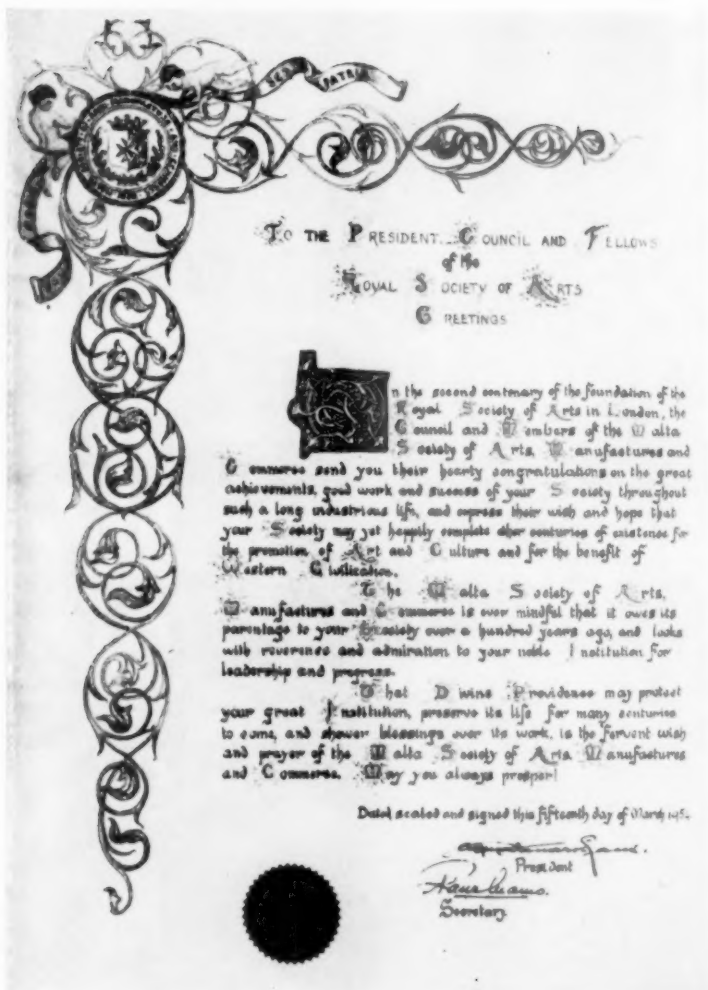 TO THE PRESIDENT COUNCIL AND FELLOWS
of the
ROYAL SOCIETY OF ARTS
GREETINGS
In the second centenary of the foundation of the
Royal Society of Arts in London, the
Council and Members of the Malta
Society of Arts, Manufactures and
Commerce send you their hearty congratulations on the great
achievements, good work and success of your Society throughout
such a long industrious life, and express their wish and hope that
your Society may yet happily complete other centuries of existence for
the promotion of Art and Culture and for the benefit of
Western Civilization.
The Malta Society of Arts,
Manufactures and Commerce is ever mindful that it owes its
parentage to your Society over a hundred years ago, and looks
with reverence and admiration to your noble Institution for
leadership and progress.
That Divine Providence may protect
your great Institution, preserve its life for many centuries
to come, and shower blessings over its work, is the fervent wish
and prayer of the Malta Society of Arts, Manufactures
and Commerce. May you always prosper!
Dated, sealed and signed this fifteenth day of March
President
Secretary.